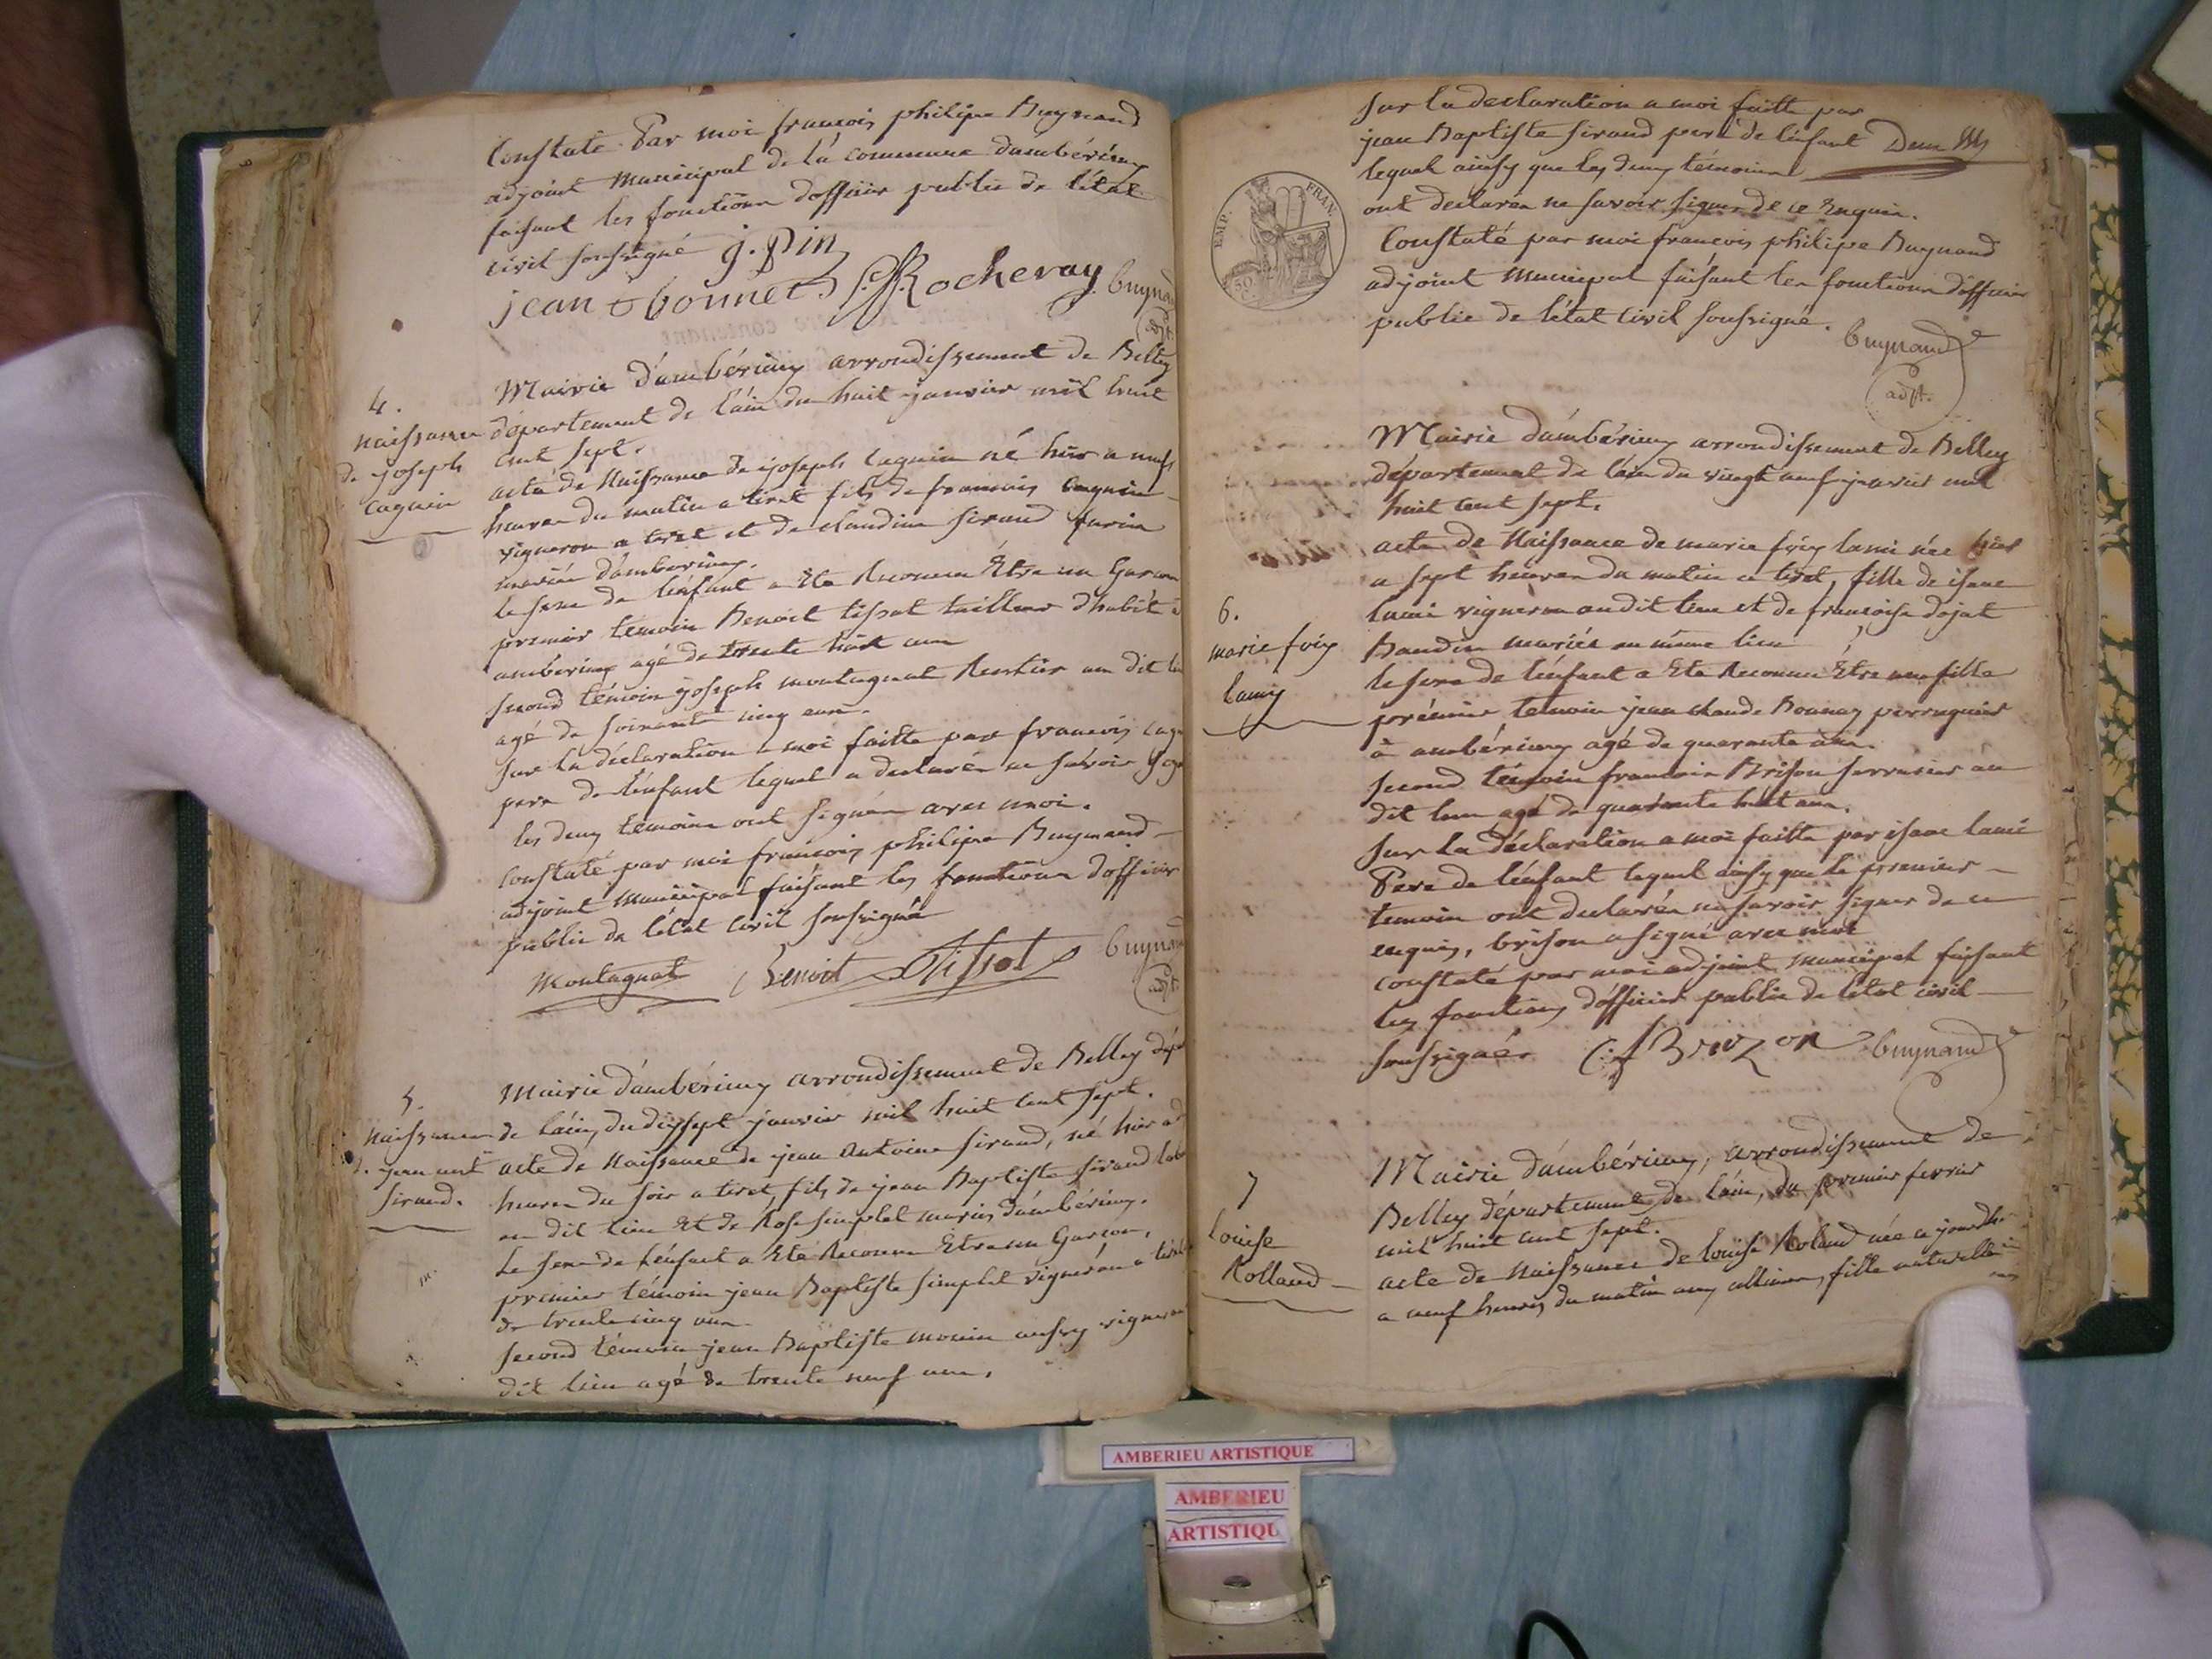 Constaté Par moi francois philipe Buynand
adjoint municipal de la commune dambérieux
faisant les fonctions dofficier public de l'état
civil soussigné j. pin
jean bonnet Rocheray buynand
adjt.
4.
naissance
de joseph
caguin
Mairie d'ambérieux arrondissement de Belley
département de l'ain du huit janvier mil huit
cent sept.
acte de Naissance de joseph caguin né hier a neuf
heures du matin a tiret fils de francois caguin
vigneron a tiret et de claudine sirand
mariés d'amberieux.
le sexe de l'enfant a Eté Reconnu Etre un Garcon
premier témoin Benoit tissot tailleur d'habit à
amberieux agé de trente huit ans
second témoin joseph montagnat Rentier au dit lieu
agé de soixante cinq ans.
sur la déclaration a moi faitte par francois
pere de l'enfant lequel a declarén ne savoir
les deux témoins ont signén avec moi.
Constaté par moi francois philipe Buynand
adjoint municipal faisant les fonctions dofficier
public de l'état civil soussigné
Montagnat Benoit Tissot buynand
adjt.
5.
Naissance
de jean ant
sirand.
Mairie d'ambérieux arrondissement de Belley
de l'ain, du dixsept janvier mil huit cent sept.
acte de Naissance de jean Antoine sirand, né hier a
heures du soir a tiret, fils de jean Baptiste sirand
au dit lieu Et de Rose simplet mariés d'ambérieux.
Le sexe de l'enfant a Eté Reconnu Etre un Garcon,
premier témoin jean Baptiste simplet vigneron a tiret
de trente cinq ans.
second témoin jean Baptiste monin aussy vigneron
dit lieu agé de trente neuf ans.
sur la declaration a moi faitte par
jean Baptiste sirand pere de l'enfant
lequel ainsy que les deux témoins
ont declarén ne savoir signer de ce Enquis.
Constaté par moi francois philipe Buynand
adjoint municipal faisant les fonctions dofficier
public de l'état civil soussigné.
buynand
adjt.
EMP. FRAN.
50
Mairie d'ambérieux arrondissement de Belley
département de l'ain du vingt neuf janvier mil
huit cent sept.
6.
marie foix
lamy
acte de Naissance de marie foix lami née hier
a sept heures du matin a tiret, fille de isaac
lami vigneron audit lieu et de francoise dojat
Baudin mariés au même lieu
le sexe de l'enfant a Eté Reconnu Etre une fille
premier temoin jean claude Bonnay perruquier
à ambérieux agé de quarante ans.
second témoin francois Brison serrurier au
dit lieu agé de quarante huit ans.
Sur la déclaration a moi faitte par isaac lami
Pere de l'enfant lequel ainsy que le premier
temoin ont declarén ne savoir signer de ce
enquis, brison a signé avec moi
constaté par moi adjoint municipal faisant
les fonctions d'officier public de l'état civil
soussigné. Brizon buynand
7
Louise
Rolland
Mairie d'ambérieux, arrondissement de
Belley département de l'ain, du premier fevrier
mil huit cent sept.
acte de Naissance de louise Roland née ajourdh
a neuf heures du matin aux allimes, fille naturelle
AMBERIEU ARTISTIQUE
AMBERIEU
ARTISTIQU